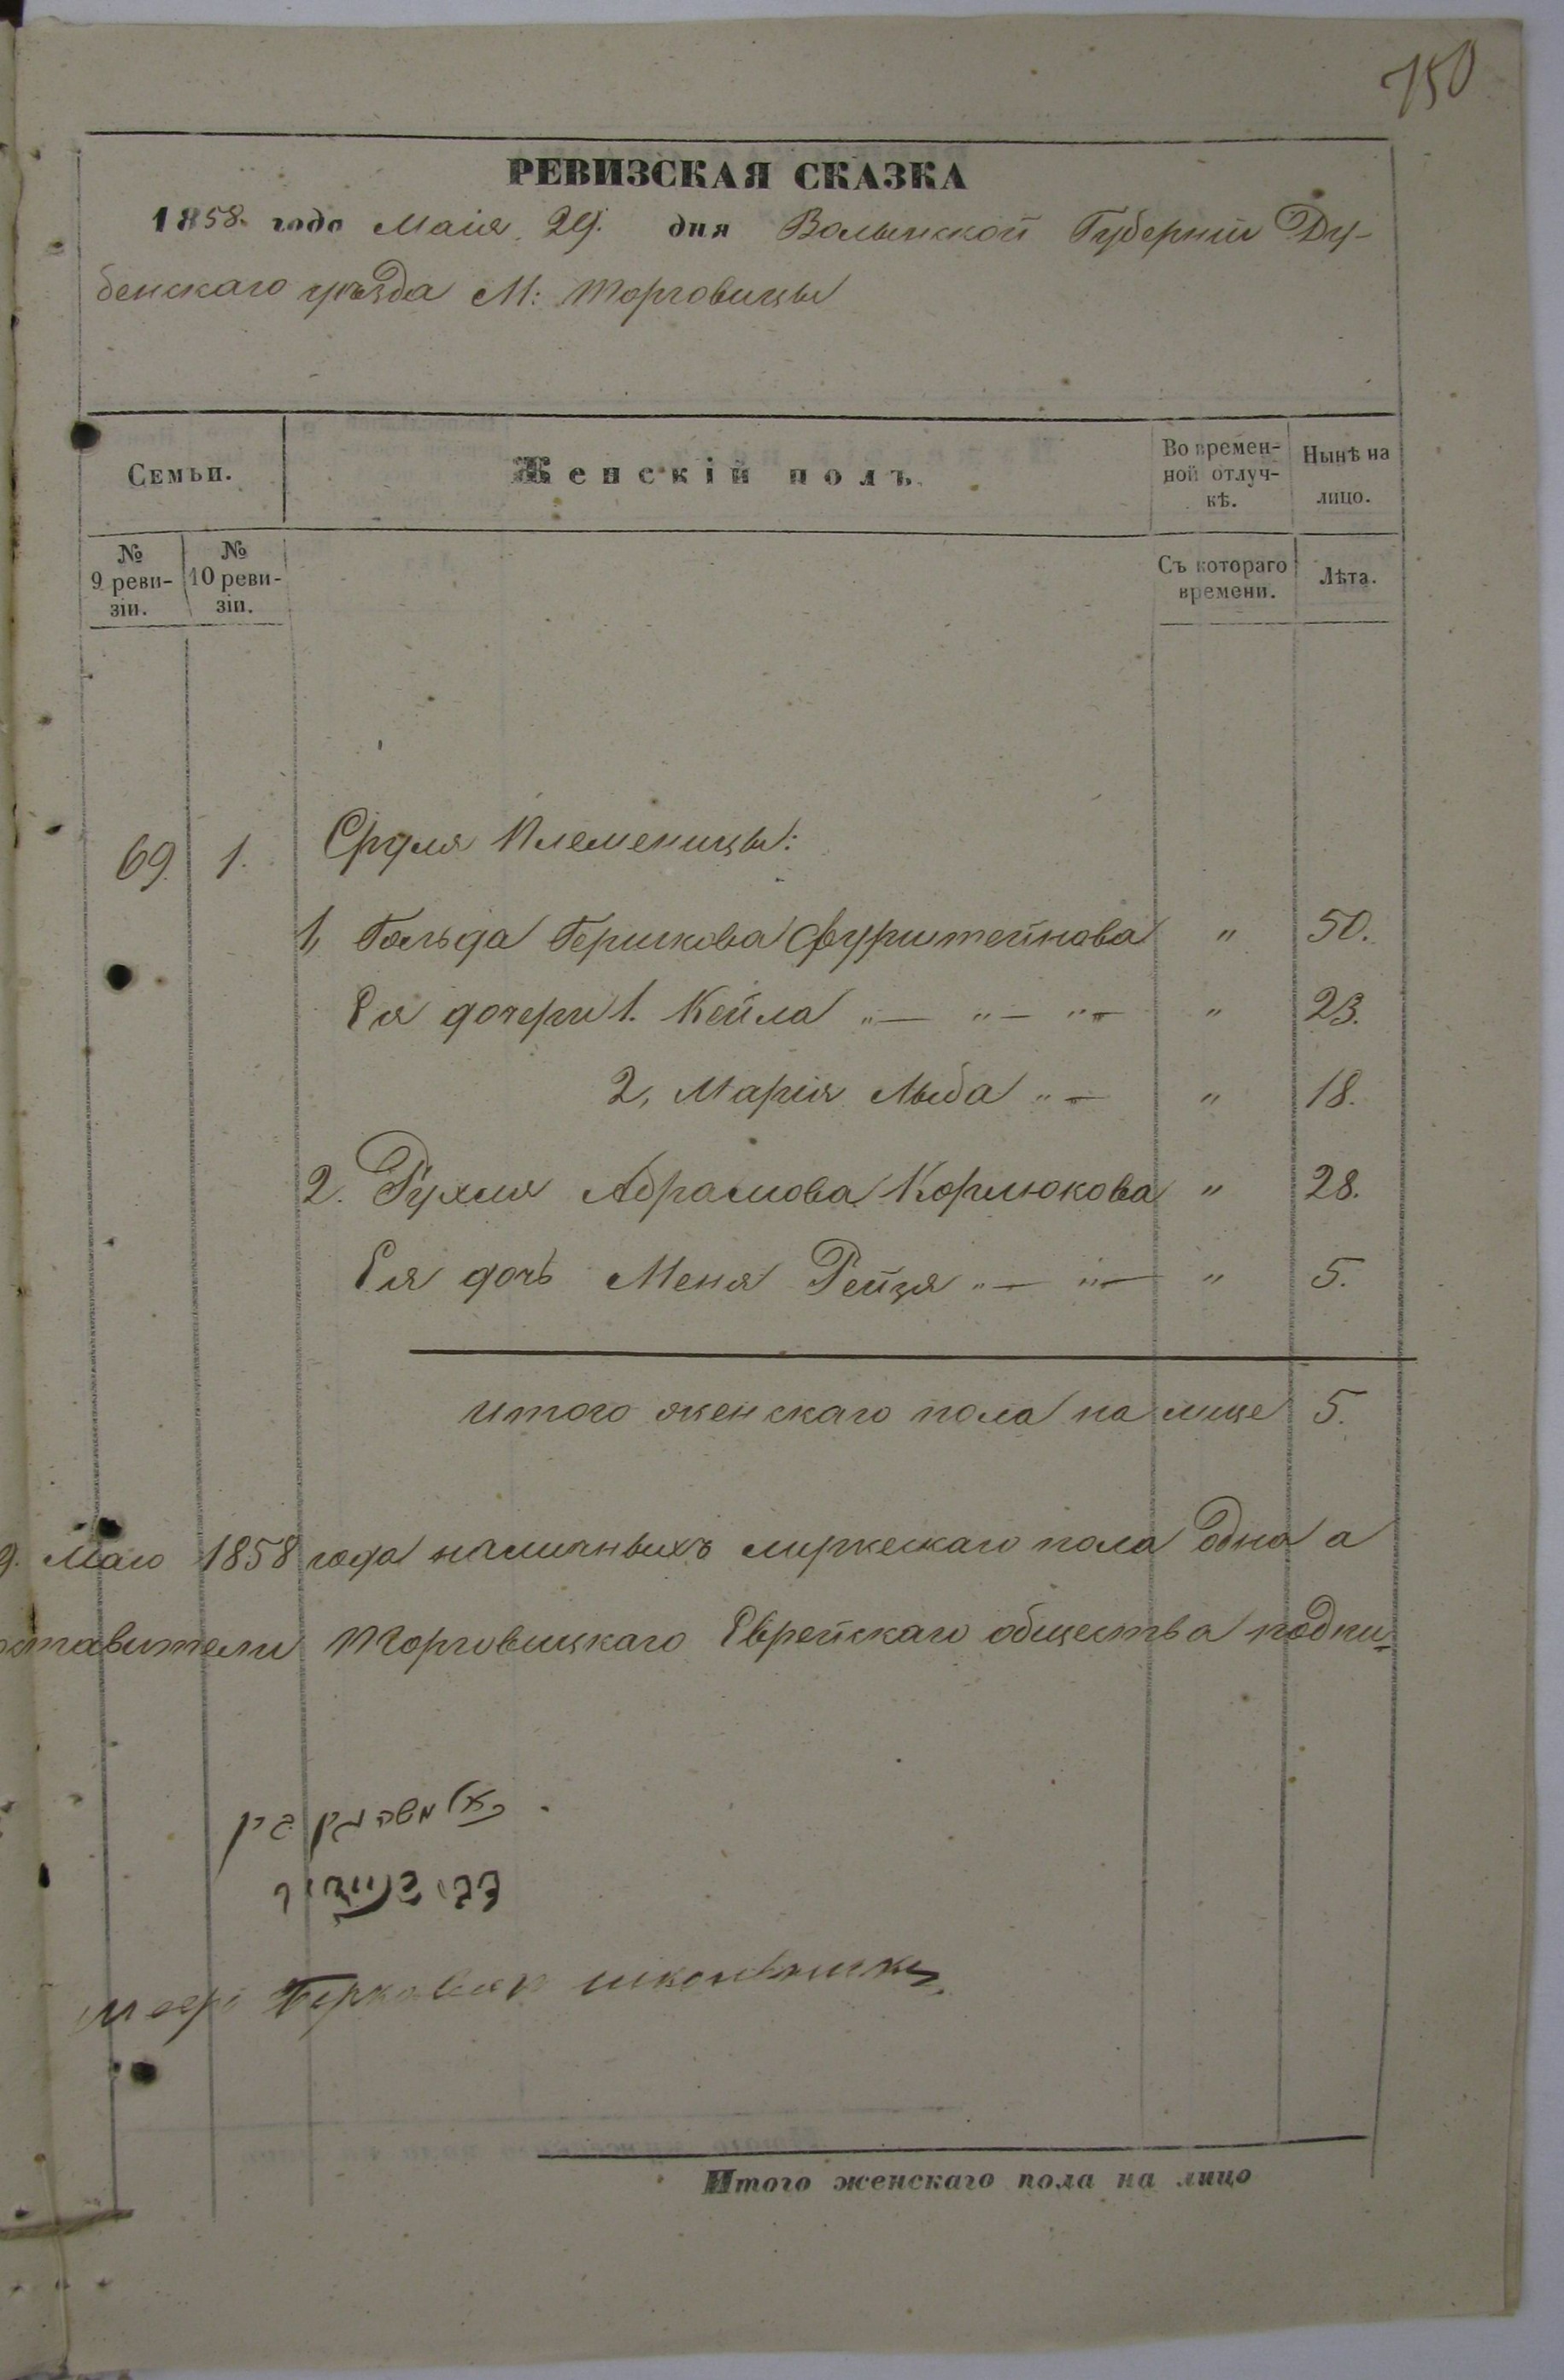 150
РЕВИЗСКАЯ СКАЗКА
1858. года Маія 29. дня Волынской Губерніи Ду-
бенскаго уѣзда М: Торговицы
Семьи.
Женскій полъ.
Во времен-
ной отлуч-
кѣ.
Нынѣ на
лицо.
№
9 реви-
зіи.
№
10 реви-
зіи.
Съ котораго
времени.
Лѣта.
69. 1. Сруля Племеницы:
1, Гольда Гершкова Фурштейнова " 50.
Ея дочери 1. Кейла "— "— "— " 23.
2, Марія Лыба "— " 18.
2. Рухля Абрамова Кормюкова " 28.
Ея дочь Меня Рейзя "— "— " 5.
Итого женскаго пола на лице 5.
9. Маю 1858 года наличныхъ мужескаго пола одна а
ставители Торговицкаго Еврейскаго общества подпи-
משה
Итого женскаго пола на лицо